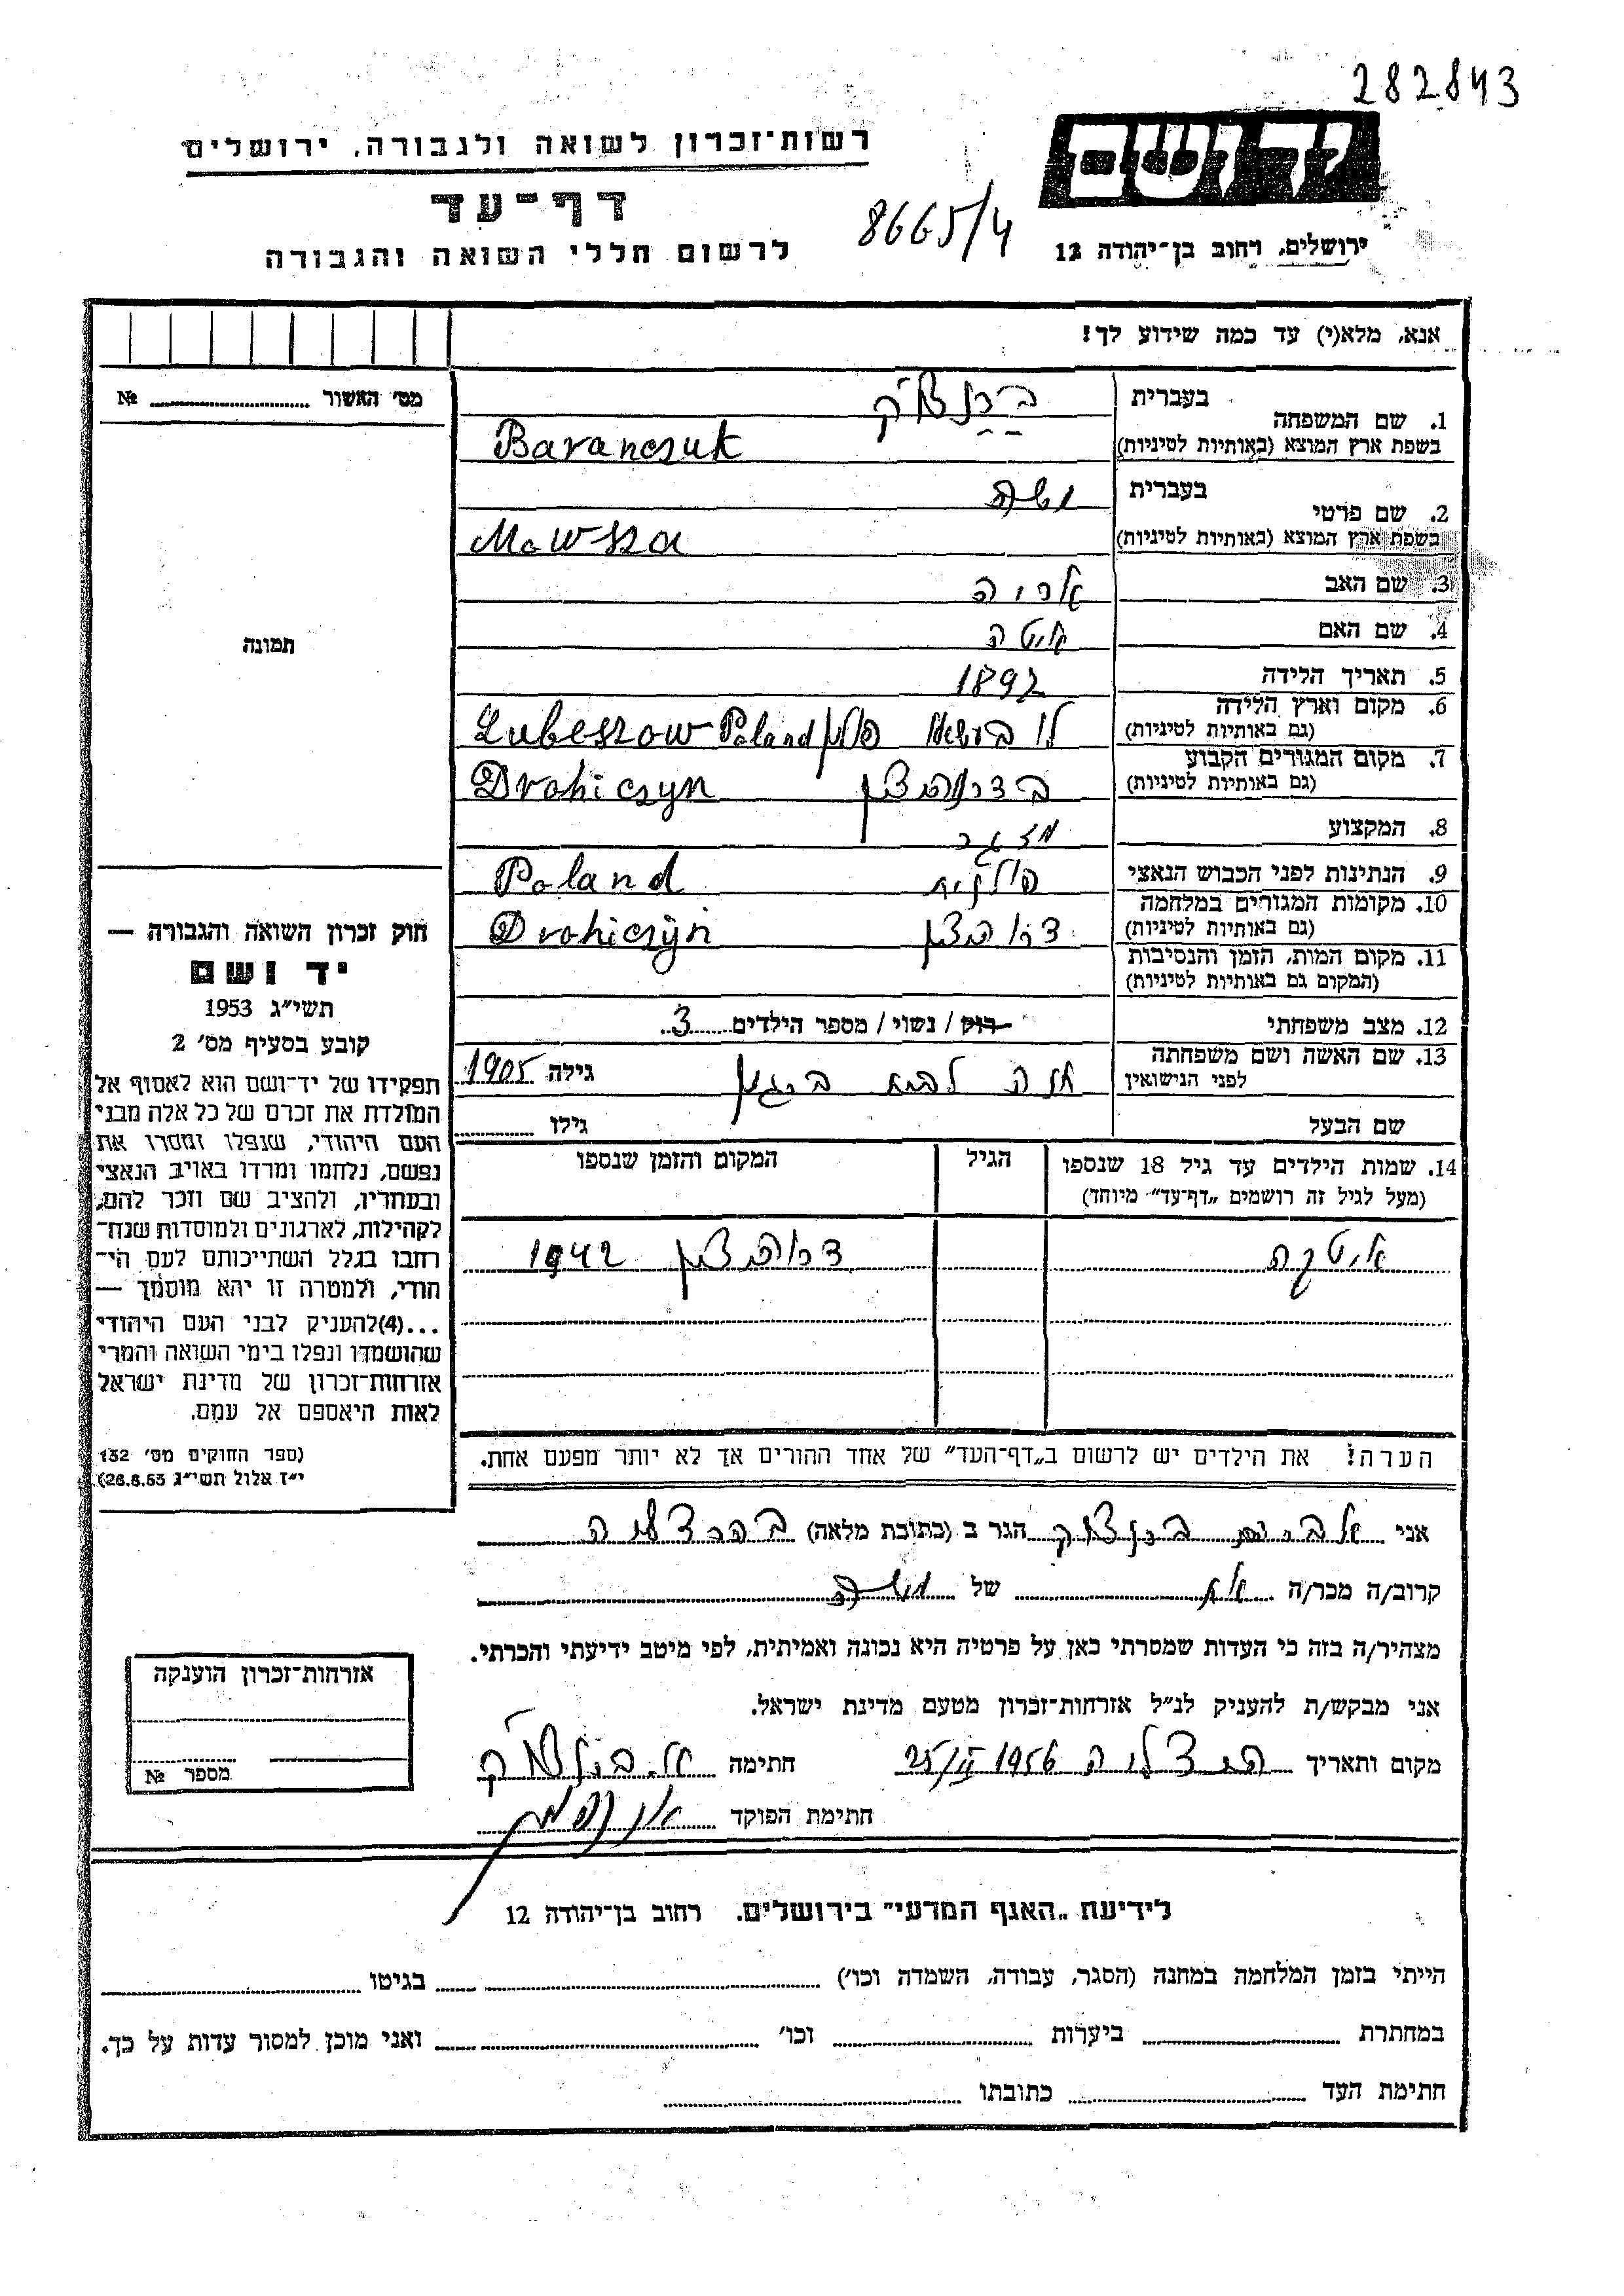 282843
רשות־זכרון לשואה ולגבורה, ירושלים
יד ושם
דף־עד
8665/4
לרשום חללי השואה והגבורה
ירושלים, רחוב בן־יהודה 12
אנא, מלא(י) עד כמה שידוע לך!
מס׳ האשור № 
1. שם המשפחה
בעברית
בשפת ארץ המוצא (באותיות לטיניות) Baranczuk
2. שם פרטי
בעברית משה
בשפת ארץ המוצא (באותיות לטיניות) Mowsza
3. שם האב אריה
4. שם האם
5. תאריך הלידה 1892
6. מקום וארץ הלידה
(גם באותיות לטיניות) Lubeszow Poland
7. מקום המגורים הקבוע
(גם באותיות לטיניות) Drohiczyn
8. המקצוע
9. הנתינות לפני הכבוש הנאצי פולנית Poland
10. מקומות המגורים במלחמה
(גם באותיות לטיניות) Drohiczyn
11. מקום המות, הזמן והנסיבות
(המקום גם באותיות לטיניות)
12. מצב משפחתי רוק / נשוי / מספר הילדים 3
13. שם האשה ושם משפחתה
לפני הנישואין
גילה 1905
שם הבעל גילו
14. שמות הילדים עד גיל 18 שנספו
(מעל לגיל זה רושמים „דף־עד״ מיוחד)
הגיל
המקום והזמן שנספו
1942
הערה! את הילדים יש לרשום ב„דף־העד״ של אחד ההורים אך לא יותר מפעם אחת.
תמונה
חוק זכרון השואה והגבורה —
יד ושם
תשי״ג 1953
קובע בסעיף מס׳ 2
תפקידו של יד־ושם הוא לאסוף אל
המולדת את זכרם של כל אלה מבני
העם היהודי, שנפלו ומסרו את
נפשם, נלחמו ומרדו באויב הנאצי
ובעוזריו, ולהציב שם וזכר להם,
לקהילות, לארגונים ולמוסדות שנח־
רבו בגלל השתייכותם לעם הי־
הודי, ולמטרה זו יהא מוסמך —
...(4)להעניק לבני העם היהודי
שהושמדו ונפלו בימי השואה והמרי
אזרחות־זכרון של מדינת ישראל
לאות היאספם אל עמם.
(ספר החוקים מס׳ 132
י״ז אלול תשי״ג 28.8.53)
אני הגר ב (כתובת מלאה) בהרצליה
קרוב/ה מכר/ה של משה
מצהיר/ה בזה כי העדות שמסרתי כאן על פרטיה היא נכונה ואמיתית, לפי מיטב ידיעתי והכרתי.
אני מבקש/ת להעניק לנ״ל אזרחות־זכרון מטעם מדינת ישראל.
מקום ותאריך הרצליה 1956 חתימה
חתימת הפוקד
אזרחות־זכרון הוענקה
מספר №
לידיעת „האגף המדעי״ בירושלים. רחוב בן־יהודה 12
הייתי בזמן המלחמה במחנה (הסגר, עבודה, השמדה וכו׳) בגיטו
במחתרת ביערות וכו׳ ואני מוכן למסור עדות על כך.
חתימת העד כתובתו